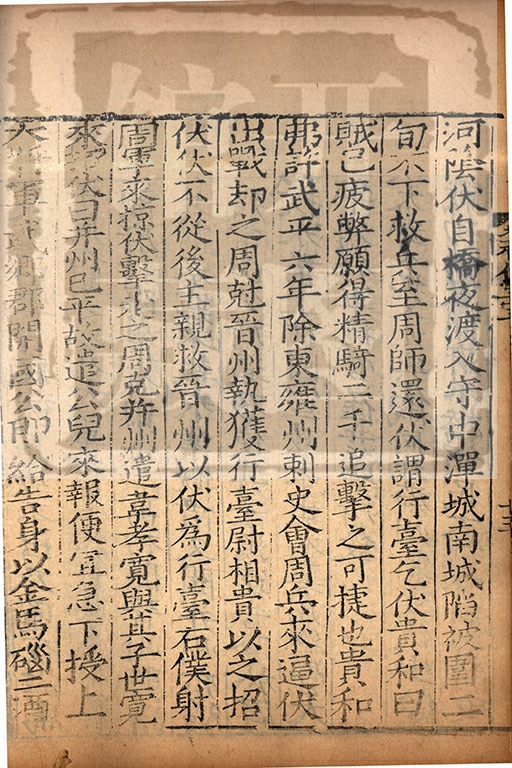 河陰伏自橋夜渡入守中潬城南城陷被圍二
旬不下救兵至周師還伏謂行臺乞伏貴和曰
賊已疲弊願得精騎二千追擊之可捷也貴和
弗許武平六年除東雍州刺史會周兵來逼伏
出戰却之周尅晉州執獲行臺尉相貴以之招
伏伏不從後主親救晉州以伏為行臺右僕射
周軍來掠伏擊走之周克并州遣韋孝寬與其子世寬
來招伏曰并州已平故遣公兒來報便宜急下授上
大將軍武鄉郡開國公即給告身以金馬碯二酒